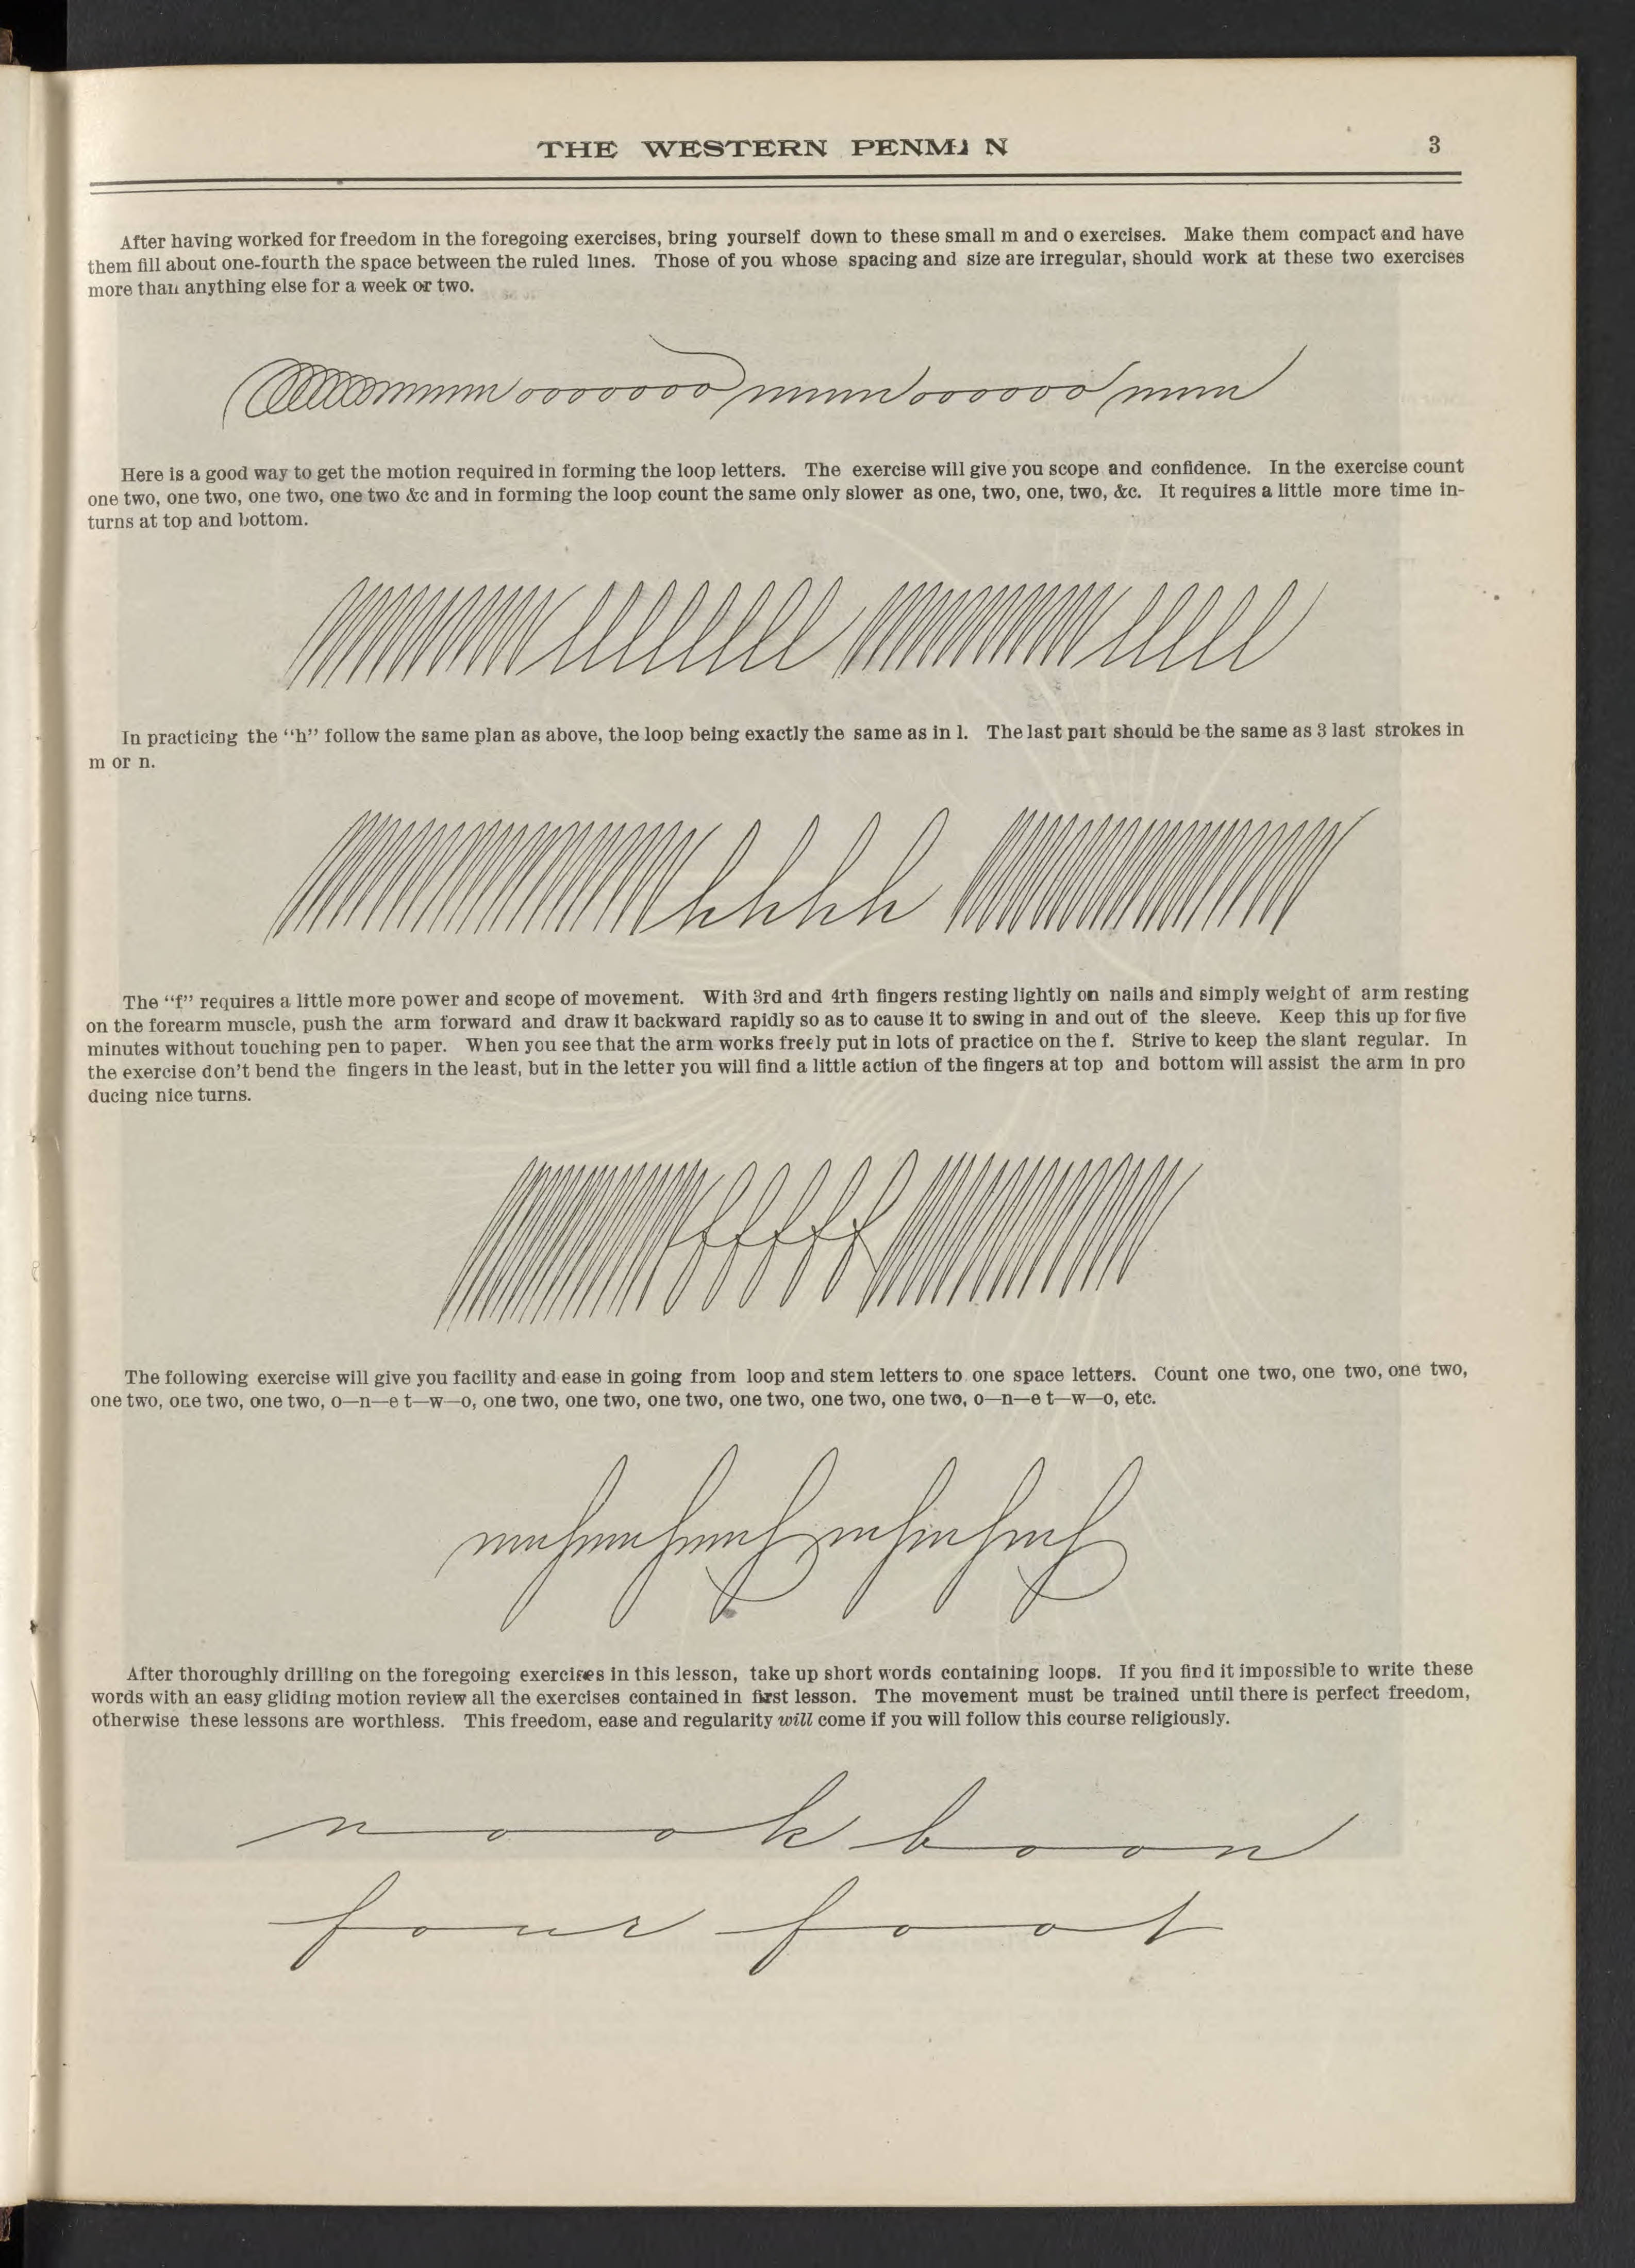 THE WESTERN PENMAN
3
After having worked for freedom in the foregoing exercises, bring yourself down to these small m and o exercises. Make them compact and have
them fill about one-fourth the space between the ruled lines. Those of you whose spacing and size are irregular, should work at these two exercises
more than anything else for a week or two.
mmmm ooooooo mmmm oooooo mmm
Here is a good way to get the motion required in forming the loop letters. The exercise will give you scope and confidence. In the exercise count
one two, one two, one two, one two &c and in forming the loop count the same only slower as one, two, one, two, &c. It requires a little more time in-
turns at top and bottom.
llllllll lllll
In practicing the “h” follow the same plan as above, the loop being exactly the same as in l. The last part should be the same as 3 last strokes in
m or n.
hhhh
The “f” requires a little more power and scope of movement. With 3rd and 4rth fingers resting lightly on nails and simply weight of arm resting
on the forearm muscle, push the arm forward and draw it backward rapidly so as to cause it to swing in and out of the sleeve. Keep this up for five
minutes without touching pen to paper. When you see that the arm works freely put in lots of practice on the f. Strive to keep the slant regular. In
the exercise don't bend the fingers in the least, but in the letter you will find a little action of the fingers at top and bottom will assist the arm in pro
ducing nice turns.
fffff
The following exercise will give you facility and ease in going from loop and stem letters to one space letters. Count one two, one two, one two,
one two, one two, one two, o—n—e t—w—o, one two, one two, one two, one two, one two, one two, o—n—e t—w—o, etc.
After thoroughly drilling on the foregoing exercises in this lesson, take up short words containing loops. If you find it impossible to write these
words with an easy gliding motion review all the exercises contained in first lesson. The movement must be trained until there is perfect freedom,
otherwise these lessons are worthless. This freedom, ease and regularity will come if you will follow this course religiously.
nook boon
four foot